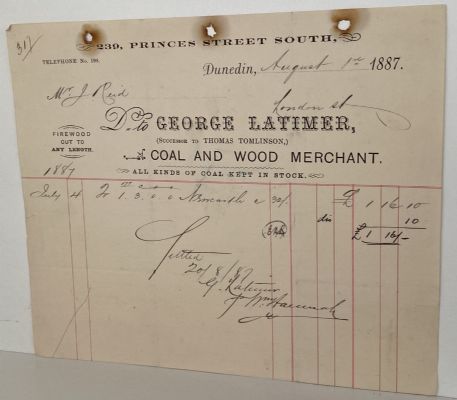 317
239, PRINCES STREET SOUTH,
TELEPHONE No. 198.
Dunedin, August 1st 1887.
Mr J Reid
London st
Dr. to GEORGE LATIMER,
(SUCCESSOR TO THOMAS TOMLINSON,)
FIREWOOD
CUT TO
ANY LENGTH.
COAL AND WOOD MERCHANT.
ALL KINDS OF COAL KEPT IN STOCK.
1887
July 4 To 1. 3. 0. 0 Newcastle @ 32/- £ 1 16 10
dis 10
£ 1 16/-
Settled
20/8/87
G. Latimer